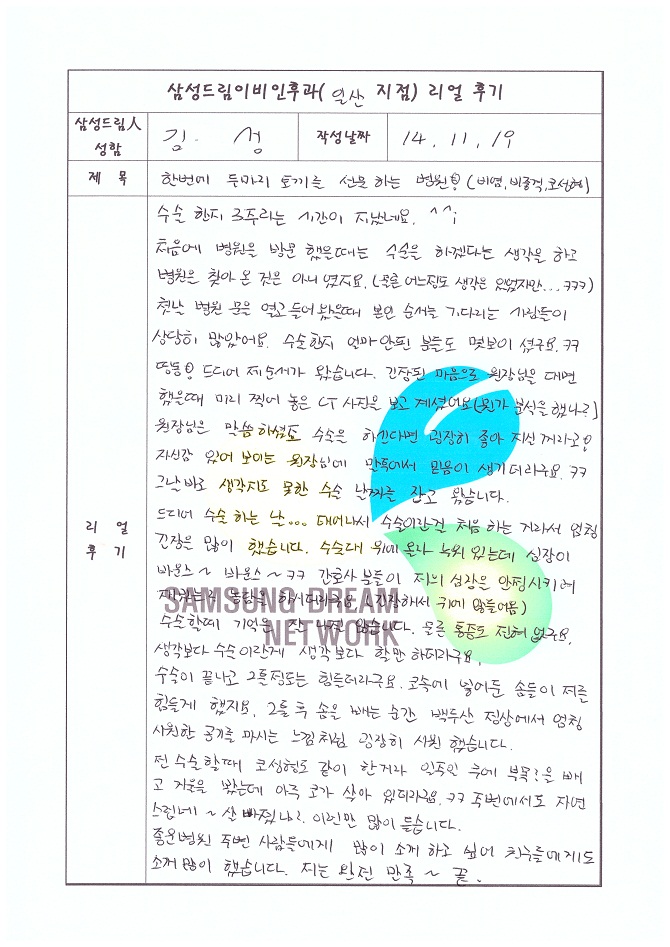 삼성드림이비인후과(일산 지점) 리얼 후기
삼성드림人 성함
김. 성
작성날짜
14. 11. 19
제 목
한번에 두마리 토끼를 선물 하는 병원! (비염, 비중격, 코성형)
리 얼 후 기
수술 한지 3주라는 시간이 지났네요. ^^;
처음에 병원을 방문 했을때는 수술을 하겠다는 생각을 하고
병원을 찾아 온 것은 아니 였지요. (물론 어느정도 생각은 있었지만... ㅋㅋㅋ)
첫날 병원 문을 열고 들어 왔을때 본인 순서를 기다리는 사람들이
상당히 많았어요. 수술한지 얼마 안된 분들도 몇보이 셨구요. ㅋㅋ
띵동! 드디어 제순서가 왔습니다. 긴장된 마음으로 원장님을 대면
했을때 미리 찍어 놓은 CT 사진을 보고 계셨어요 (뭔가 분석을 했나?)
원장님은 말씀하셨죠 수술을 하신다면 굉장히 좋아 지신 꺼라고!
자신감 있어 보이는 원장님에 만족에서 믿음이 생기더라구요. ㅋㅋ
그날 바로 생각지도 못한 수술 날짜를 잡고 왔습니다.
드디어 수술 하는 날... 태어나서 수술이란건 처음 하는 거라서 엄청
긴장은 많이 했습니다. 수술대 위에 올라 누워 있는데 심장이
바운스~ 바운스~ ㅋㅋ 간호사 분들이 저의 심장은 안정시키려
재밌는 농담을 하시더라구요 (긴장해서 귀에 안들어옴)
수술할때 기억은 잘 나진 않습니다. 물론 통증도 전혀 없구요.
생각보다 수술 이란게 생각 보다 할만 하더라구요.
수술이 끝나고 2틀정도는 힘들더라구요. 코속에 넣어둔 솜들이 저를
힘들게 했지요. 2틀 후 솜을 빼는 순간 백두산 정상에서 엄청
시원한 공기를 마시는 느낌처럼 굉장히 시원 했습니다.
전 수술할때 코성형도 같이 한거라 일주일 후에 부목?을 빼
고 거울을 봤는데 아주 코가 살아 있더라구요. ㅋㅋ 주변에서도 자연
스럽네~ 살 빠졌나? 이런말 많이 듣습니다.
좋은병원 주변 사람들에게 많이 소개 하고 싶어 친구들에게도
소개 많이 했습니다. 저는 완전 만족~ 끝.
SAMSUNG DREAM
NETWORK